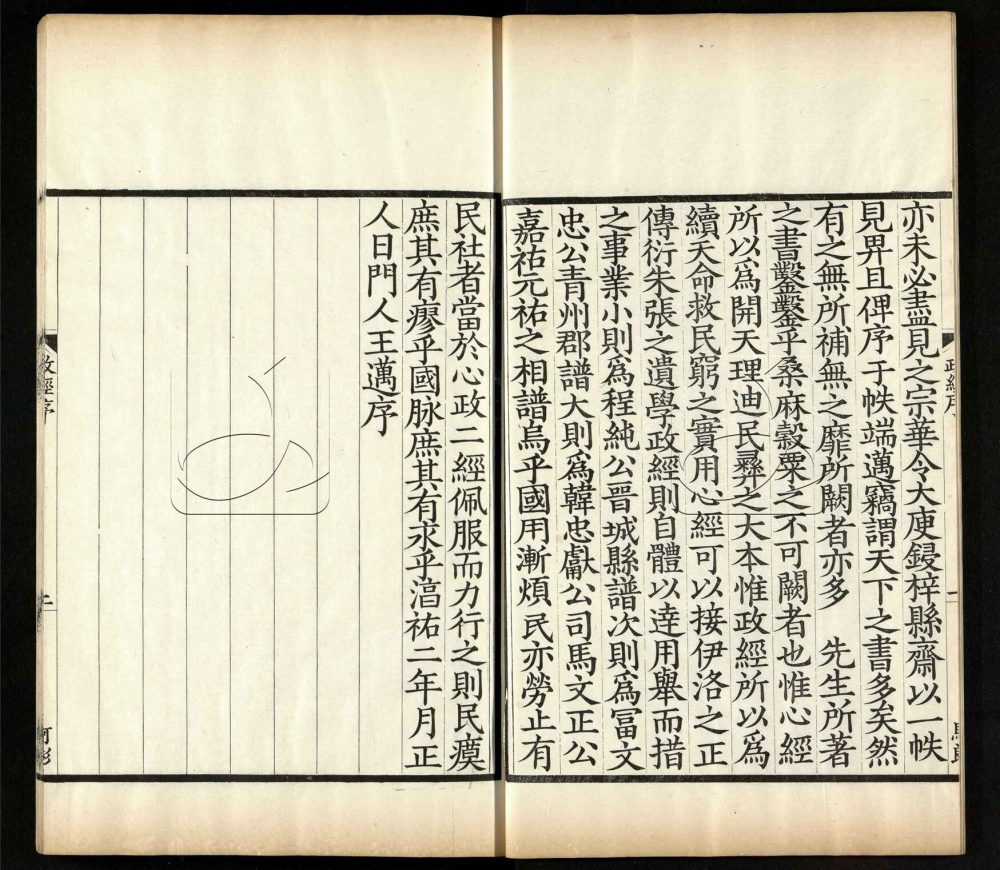 亦未必盡見之宗華今大庾鋟梓縣齋以一帙
見畀且俾序于帙端邁竊謂天下之書多矣然
有之無所補無之靡所闕者亦多　先生所著
之書鑿鑿乎桑麻穀粟之不可闕者也惟心經
所以為開天理迪民彞之大本惟政經所以為
續天命救民窮之實用心經可以接伊洛之正
傳衍朱張之遺學政經則自體以達用舉而措
之事業小則為程純公晉城縣譜次則為富文
忠公青州郡譜大則為韓忠獻公司馬文正公
嘉祐元祐之相譜烏乎國用漸煩民亦勞止有
政經序
民社者當於心政二經佩服而力行之則民瘼
庶其有瘳乎國脉庶其有求乎淳祐二年月正
人日門人王邁序
政經序
二